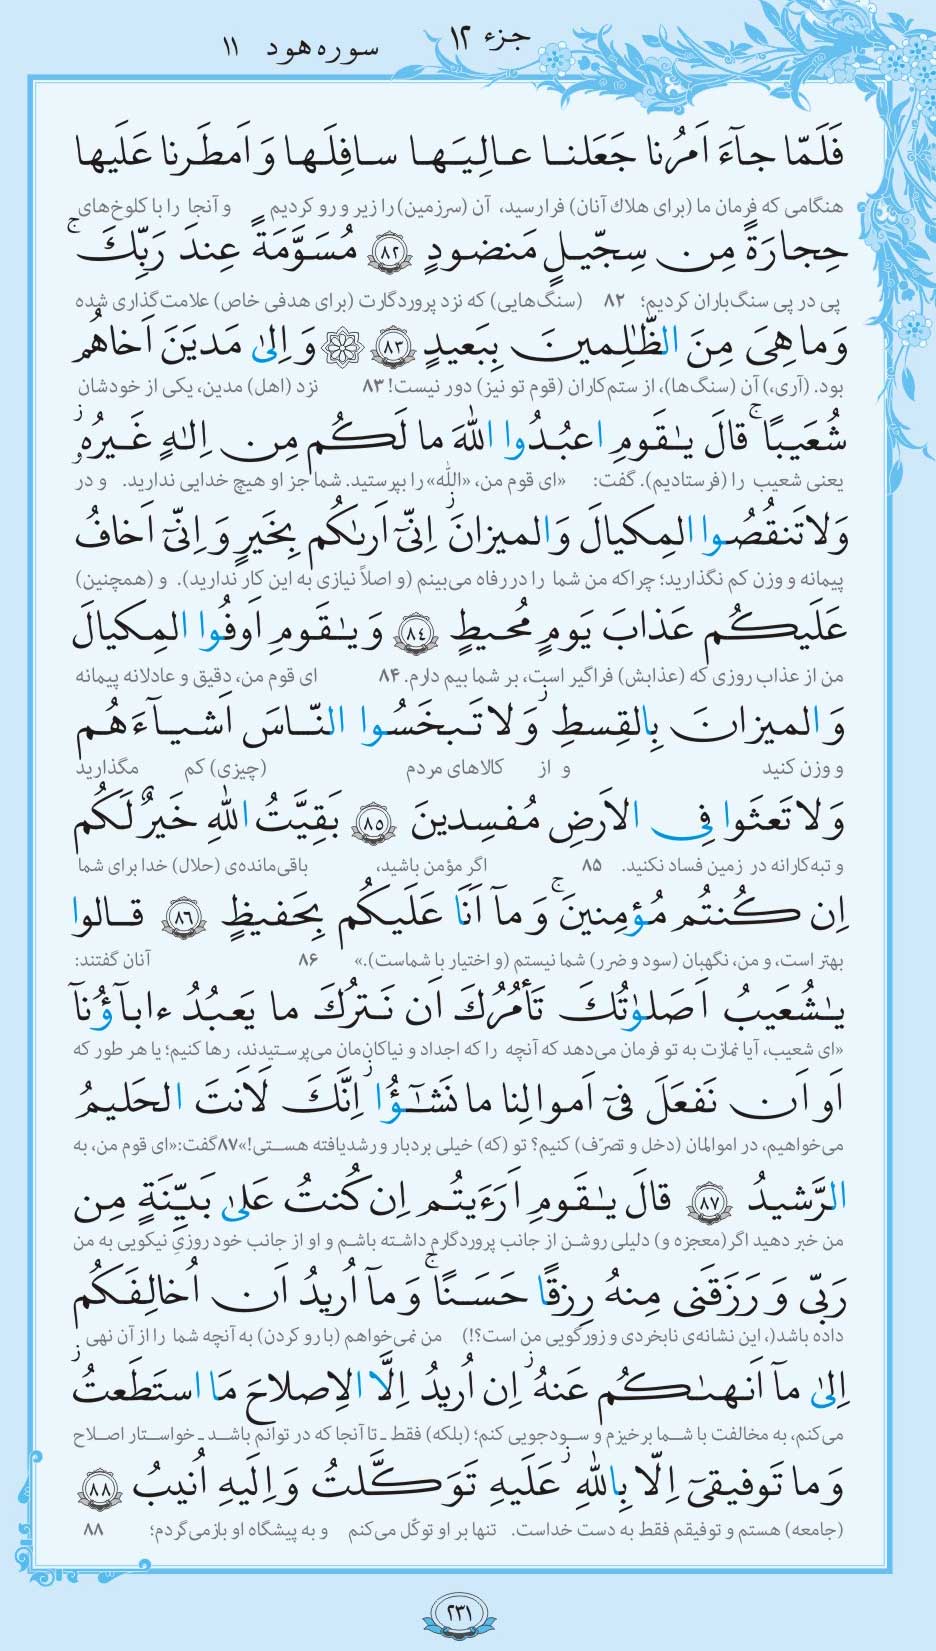 جزء ۱۲ سوره هود ۱۱
فَلَمّا جآءَ اَمرُنا جَعَلنا عالِيَها سافِلَها وَ اَمطَرنا عَلَيها
هنگامی که فرمان ما (برای هلاك آنان) فرارسید، آن (سرزمین) را زیر و رو کردیم و آنجا را با کلوخ‌های
حِجارَةً مِن سِجّيلٍ مَنضودٍ ﴿۸۲﴾ مُسَوَّمَةً عِندَ رَبِّكَ ۚ
پی در پی سنگ‌باران کردیم؛ ۸۲ (سنگ‌هایی) که نزد پروردگارت (برای هدفی خاص) علامت‌گذاری شده
وَ ما هِیَ مِنَ الظّٰلِمينَ بِبَعيدٍ ﴿۸۳﴾ ۞ وَ اِلىٰ مَديَنَ اَخاهُم
بود. (آری،) آن (سنگ‌ها)، از ستم‌کاران (قوم تو نیز) دور نیست! ۸۳ نزد (اهل) مدین، یکی از خودشان
شُعَيبًا ۚ قالَ يٰقَومِ اعبُدُوا اللّٰهَ ما لَكُم مِن اِلٰهٍ غَيرُهُ ۥ ۖ
یعنی شعیب را (فرستادیم). گفت: «ای قوم من، «اللّٰه» را بپرستید. شما جز او هیچ خدایی ندارید. و در
وَ لا تَنقُصُوا المِكيالَ وَ الميزانَ ۖ اِنّیٓ اَرىٰكُم بِخَيرٍ وَ اِنّیٓ اَخافُ
پیمانه و وزن کم نگذارید؛ چراکه من شما را در رفاه می‌بینم (و اصلاً نیازی به این کار ندارید). و (همچنین)
عَلَيكُم عَذابَ يَومٍ مُحيطٍ ﴿۸٤﴾ وَ يٰقَومِ اَوفُوا المِكيالَ
من از عذاب روزی که (عذابش) فراگیر است، بر شما بیم دارم. ۸۴ ای قوم من، دقیق و عادلانه پیمانه
وَ الميزانَ بِالقِسطِ ۖ وَ لا تَبخَسُوا النّاسَ اَشيآءَهُم
و وزن کنید و از کالاهای مردم (چیزی) کم مگذارید
وَ لا تَعثَوا فِی الاَرضِ مُفسِدينَ ﴿۸۵﴾ بَقِيَّتُ اللّٰهِ خَيرٌ لَكُم
و تبه‌کارانه در زمین فساد نکنید. ۸۵ اگر مؤمن باشید، باقی‌مانده‌ی (حلال) خدا برای شما
اِن كُنتُم مُؤمِنينَ ۚ وَ مآ اَنَا عَلَيكُم بِحَفيظٍ ﴿۸۶﴾ قالوا
بهتر است، و من، نگهبان (سود و ضرر) شما نیستم (و اختیار با شماست).» ۸۶ آنان گفتند:
يٰشُعَيبُ اَصَلوٰتُكَ تَأمُرُكَ اَن نَترُكَ ما يَعبُدُ ءابآؤُنآ
«ای شعیب، آیا نمازت به تو فرمان می‌دهد که آنچه را که اجداد و نیاکان‌مان می‌پرستیدند، رها کنیم؛ یا هر طور که
اَو اَن نَفعَلَ فیٓ اَموالِنا ما نَشٰٓؤُا ۖ اِنَّكَ لَاَنتَ الحَليمُ
می‌خواهیم، در اموالمان (دخل و تصرّف) کنیم؟ تو (که) خیلی بردبار و رشدیافته هستی!» ۸۷ گفت: «ای قوم من، به
الرَّشيدُ ﴿۸۷﴾ قالَ يٰقَومِ اَرَءَيتُم اِن كُنتُ عَلىٰ بَيِّنَةٍ مِن
من خبر دهید اگر (معجزه و) دلیلی روشن از جانب پروردگارم داشته باشم و او از جانب خود روزیِ نیکویی به من
رَبّی وَ رَزَقَنی مِنهُ رِزقًا حَسَنًا ۚ وَ مآ اُريدُ اَن اُخالِفَكُم
داده باشد(، این نشانه‌ی نابخردی و زورگویی من است؟!) من نمی‌خواهم (با رو کردن) به آنچه شما را از آن نهی
اِلىٰ مآ اَنهىٰكُم عَنهُ ۚ اِن اُريدُ اِلَّا الاِصلاحَ مَا استَطَعتُ ۚ
می‌کنم، به مخالفت با شما برخیزم و سودجویی کنم؛ (بلکه) فقط ـ تا آنجا که در توانم باشد ـ خواستار اصلاح
وَ ما تَوفيقیٓ اِلّا بِاللّٰهِ ۚ عَلَيهِ تَوَكَّلتُ وَ اِلَيهِ اُنيبُ ﴿۸۸﴾
(جامعه) هستم و توفیقم فقط به دست خداست. تنها بر او توکّل می‌کنم و به پیشگاه او بازمی‌گردم؛ ۸۸
۲۳۱